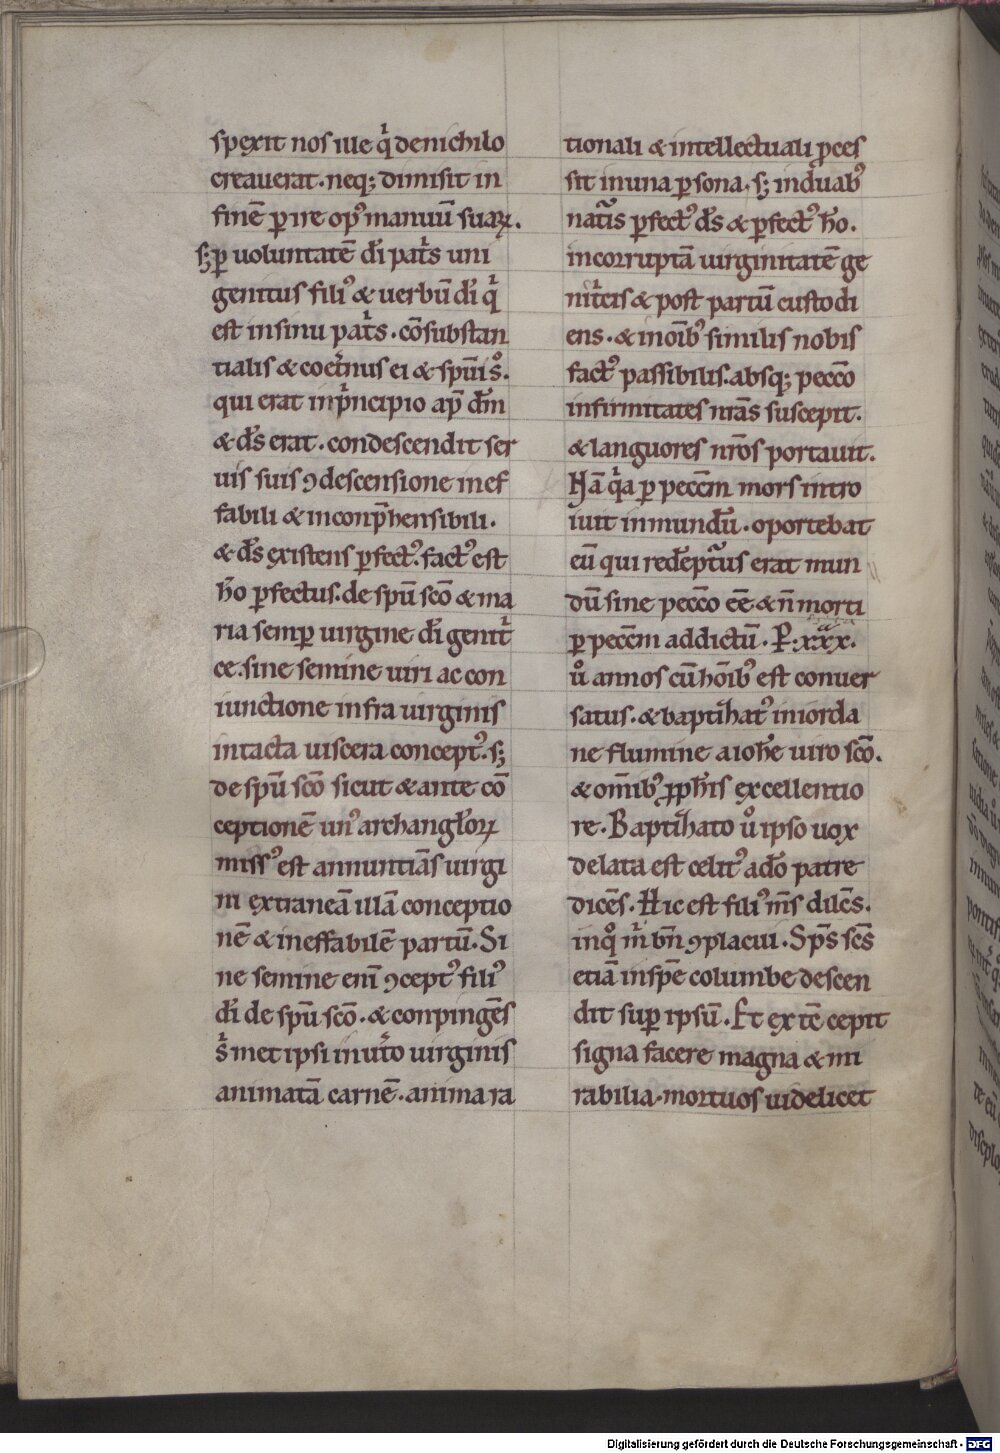 spexit nos ille q̇ de nichilo
creauerat. neq; dimisit in
finē ꝑire opꝰ manuū suaꝝ.
s;ꝑ uoluntatē dī pat̄s uni
genitus filiꝰ & uerbū dī q̇
est in sinu pat̄s. cōsubstan
tialis & coet̄nus ei & spūi s̊.
qui erat in p̄ncipio ap̄ dm̄
& ds̄ erat. condescendit ser
uis suis ꝯdescensione inef
fabili & inconp̄hensibili.
& ds̄ existens ꝑfectꝰ. factꝰ est
ho̅ ꝑfectus. de spū scō & ma
ria semꝑ uirgine dī genit̄
ce. sine semine uiri ac con
iunctione infra uirginis
intacta uiscera conceptꝰ. s;
de spū scō sicut & ante cō
ceptionē unꝰ archangłoꝝ
missꝰ est annuntiās uirgi
ni extraneā illā conceptio
nē & ineffabilē partū. Si
ne semine enī ꝯceptꝰ filiꝰ
dī de spū scō. & conpingēs
s̄ met ipsi in ut̄o uirginis
animatā carnē. anima ra
tionali & intellectuali p̱ces
sit in una ꝑsona. s; in duabꝰ
natīs ꝑfectꝰ ds̄ & ꝑfectꝰ ho̅.
incorruptā uirginitatē ge
nit̄cis & post partū custodi
ens. & in oīb; similis nobis
factꝰ passibilis. absq; peccō
infirmitates nrās suscepit.
& languores nrōs portauit.
Nā q̇a ꝑ peccm̄ mors intro
iuit in mundū. oportebat
eū qui redēptūs erat mun
dū sine peccō eē & n̄ morti
ꝑ peccm̄ addictū. P. xxx.
ů annos cū hōibꝰ est conuer
satus. & baptiħatꝰ in iorda
ne flumine a ioħe uiro scō.
& om̄ibꝰ ꝓpħis excellentio
re. Baptiħato ů ipso uox
delata est celitꝰ a dō patre
dicēs. Hic est filiꝰ ms̄ dilcs̄.
inq̊ m̄ bn̄ ꝯplacui. Sps̄ scs̄
etiā in spē columbe descen
dit suꝑ ipsū. Et ex tē cepit
signa facere magna & mi
rabilia. mortuos uidelicet
Digitalisierung gefördert durch die Deutsche Forschungsgemeinschaft - DFG